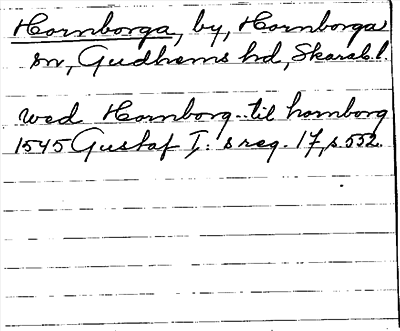 Hornborga, by, Hornborga
sn, Gudhems hd, Skarab.l.
wed Hornborg .. til hornborg
1545 Gustaf I:s reg. 17, s. 552.